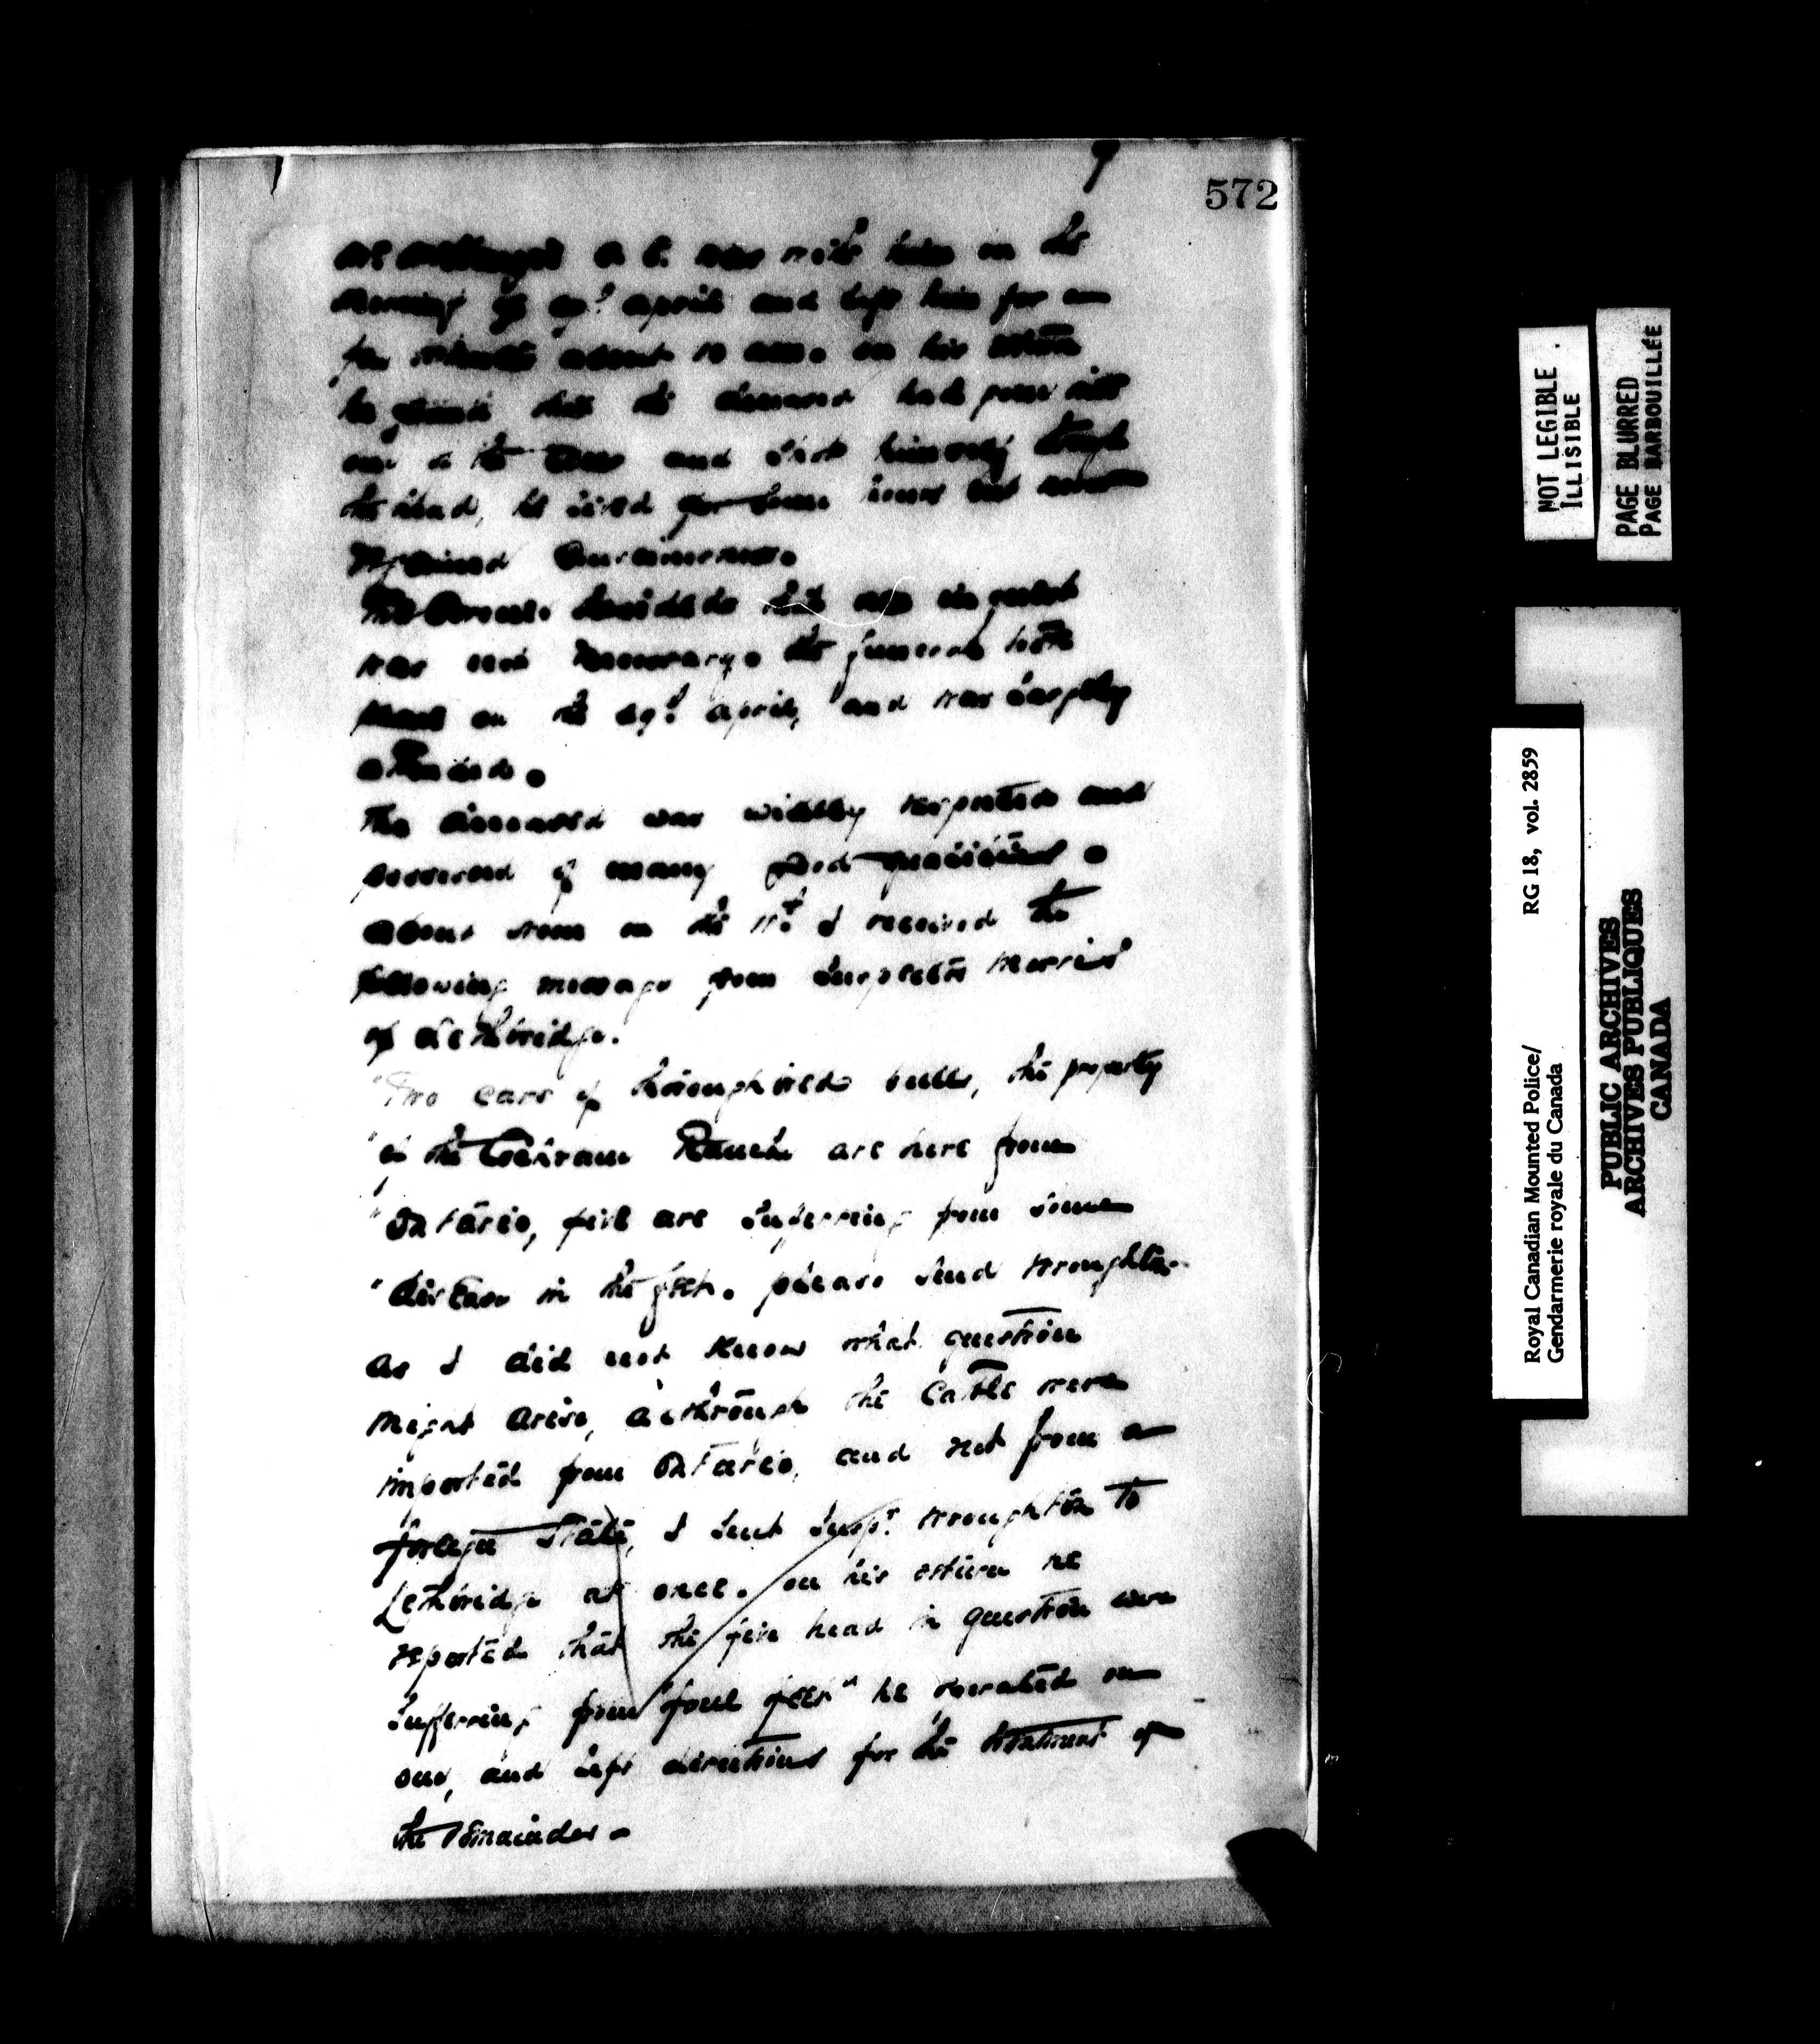 9
572
was with him on the
morning of April and left him for a
few minutes about 10 a.m. on his return
he found that the deceased had gone into
and shot himself through
the head, he lived for some hours but never
regained Consciousness.
The Coroner decided that an inquest
was not necessary. the funeral took
place on the 29th April, and was largely
attended.
The deceased was widely respected and
possessed of many good qualities.
about noon on the 11th I received the
following message from Inspector Morris
of Lethbridge.
"Two cars of thoroughbred bulls, the property
"of the Cochrane Ranche are here from
"Ontario, five are suffering from some
"disease in the feet. please send Wroughton
as I did not know what question
might arise, although the Cattle were
imported from Ontario, and not from a
foreign State, I sent Insp. Wroughton to
Lethbridge at once. on his return he
reported that the five head in question were
suffering from "foul feet" he operated on
one, and left directions for the treatment of
the remainder -
NOT LEGIBLE
ILLISIBLE
PAGE BLURRED
PAGE BARBOUILLÉE
Royal Canadian Mounted Police/ RG 18, vol. 2859
Gendarmerie royale du Canada
PUBLIC ARCHIVES
ARCHIVES PUBLIQUES
CANADA